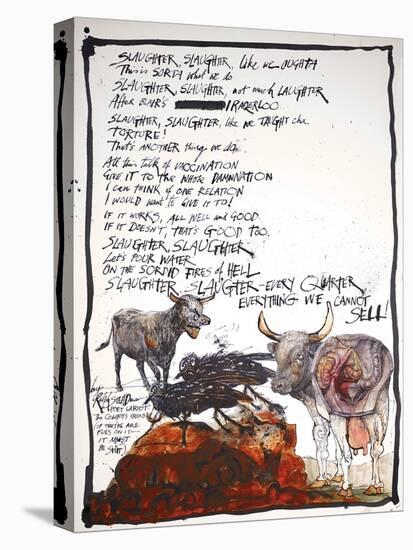 SLAUGHTER, SLAUGHTER, like we OUGHTA
This is SORTA what we do
SLAUGHTER, SLAUGHTER, not much LAUGHTER
After BLAIR'S IRAQERLOO
SLAUGHTER, SLAUGHTER, like we TAUGHT cha
TORTURE!
That's ANOTHER thing we do.
All this talk of VACCINATION
GIVE IT TO the WHOLE DAMNATION
I can think of one RELATION
I WOULD want to GIVE IT TO!
IF IT WORKS, ALL WELL and GOOD.
IF IT DOESN'T, THAT'S GOOD TOO.
SLAUGHTER, SLAUGHTER
Let's POUR WATER
ON THE SORDID FIRES of HELL
SLAUGHTER, SLAUGHTER - EVERY QUARTER
EVERYTHING WE CANNOT
SELL!
by
Ralph STEADman
POET
The
IF THEY'RE ARE
FLIES ON IT—
IT MUST
BE SHIT!